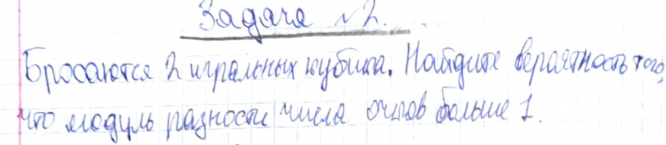 Задача №2.
Бросаются 2 игральных кубика. Найдите вероятность того,
что модуль разности числа очков больше 1.